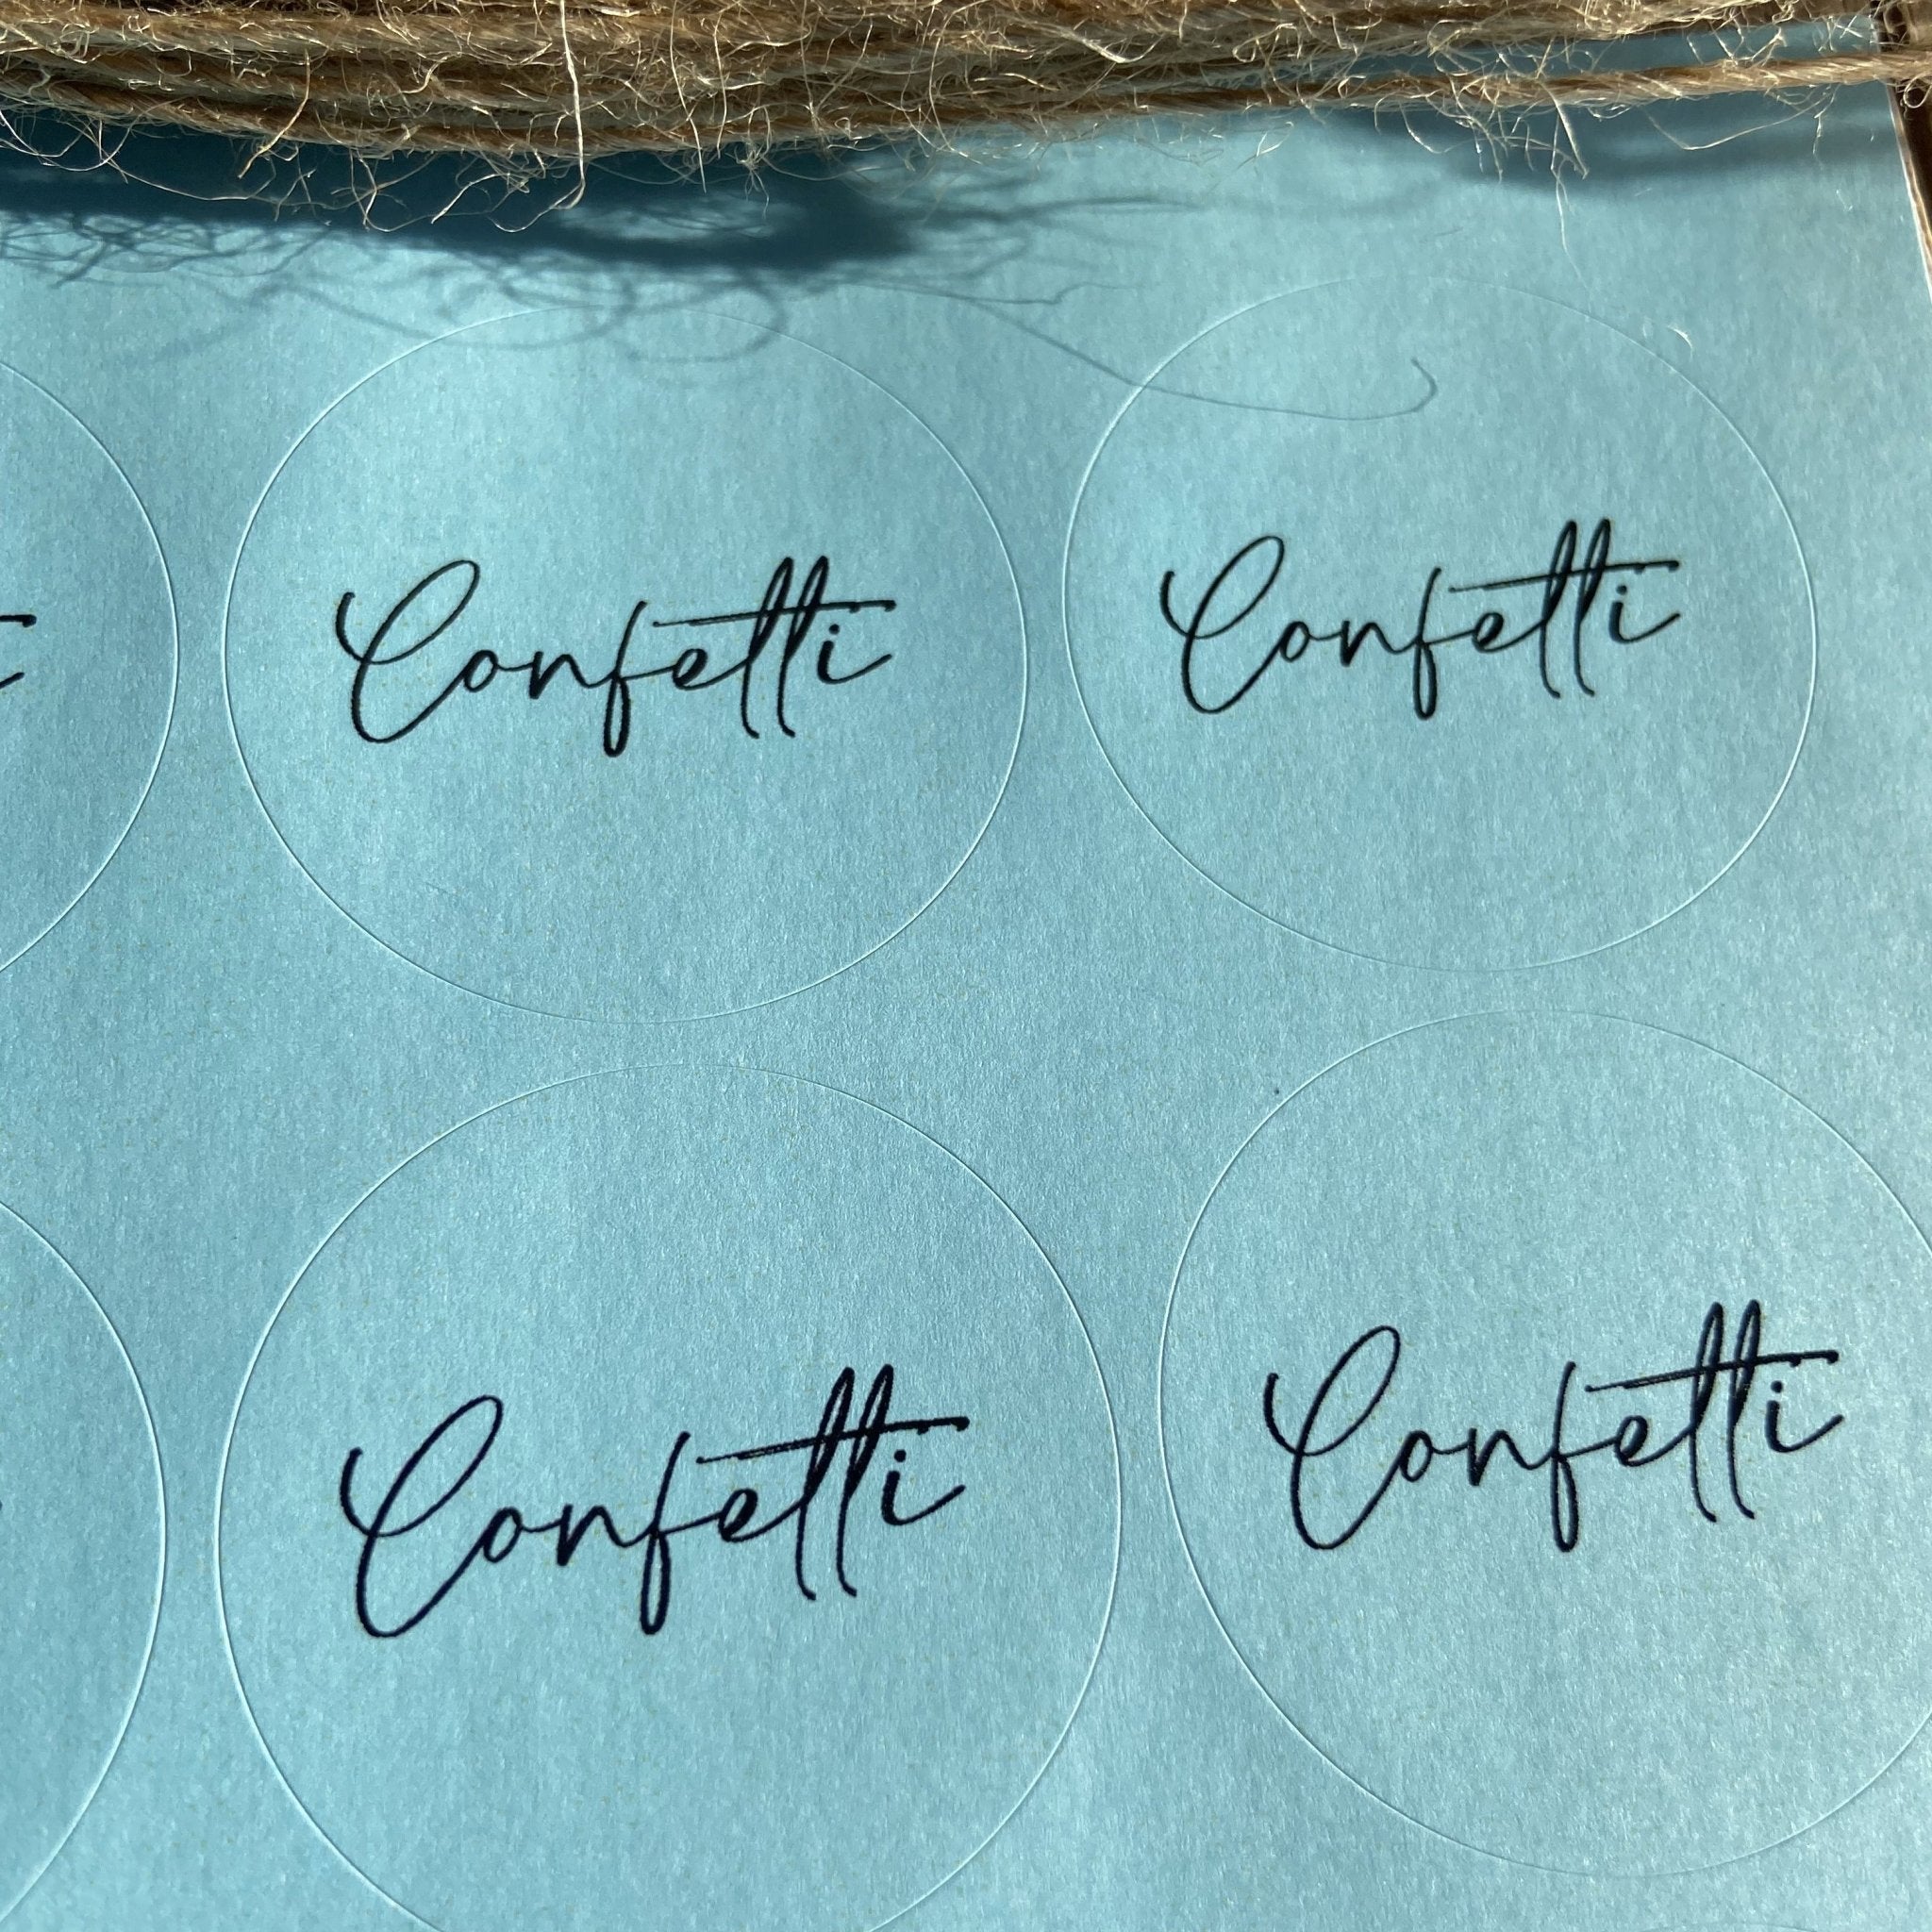 Confetti
Confetti
Confetti
Confetti